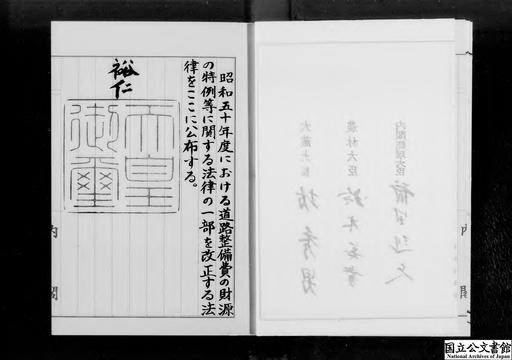 内閣総理大臣 福田赳夫
農林大臣 鈴木善幸
大蔵大臣 坊秀男
昭和五十年度における道路整備費の財源
の特例等に関する法律の一部を改正する法
律をここに公布する。
裕仁
天皇
御璽
内閣
内閣
国立公文書館
National Archives of Japan